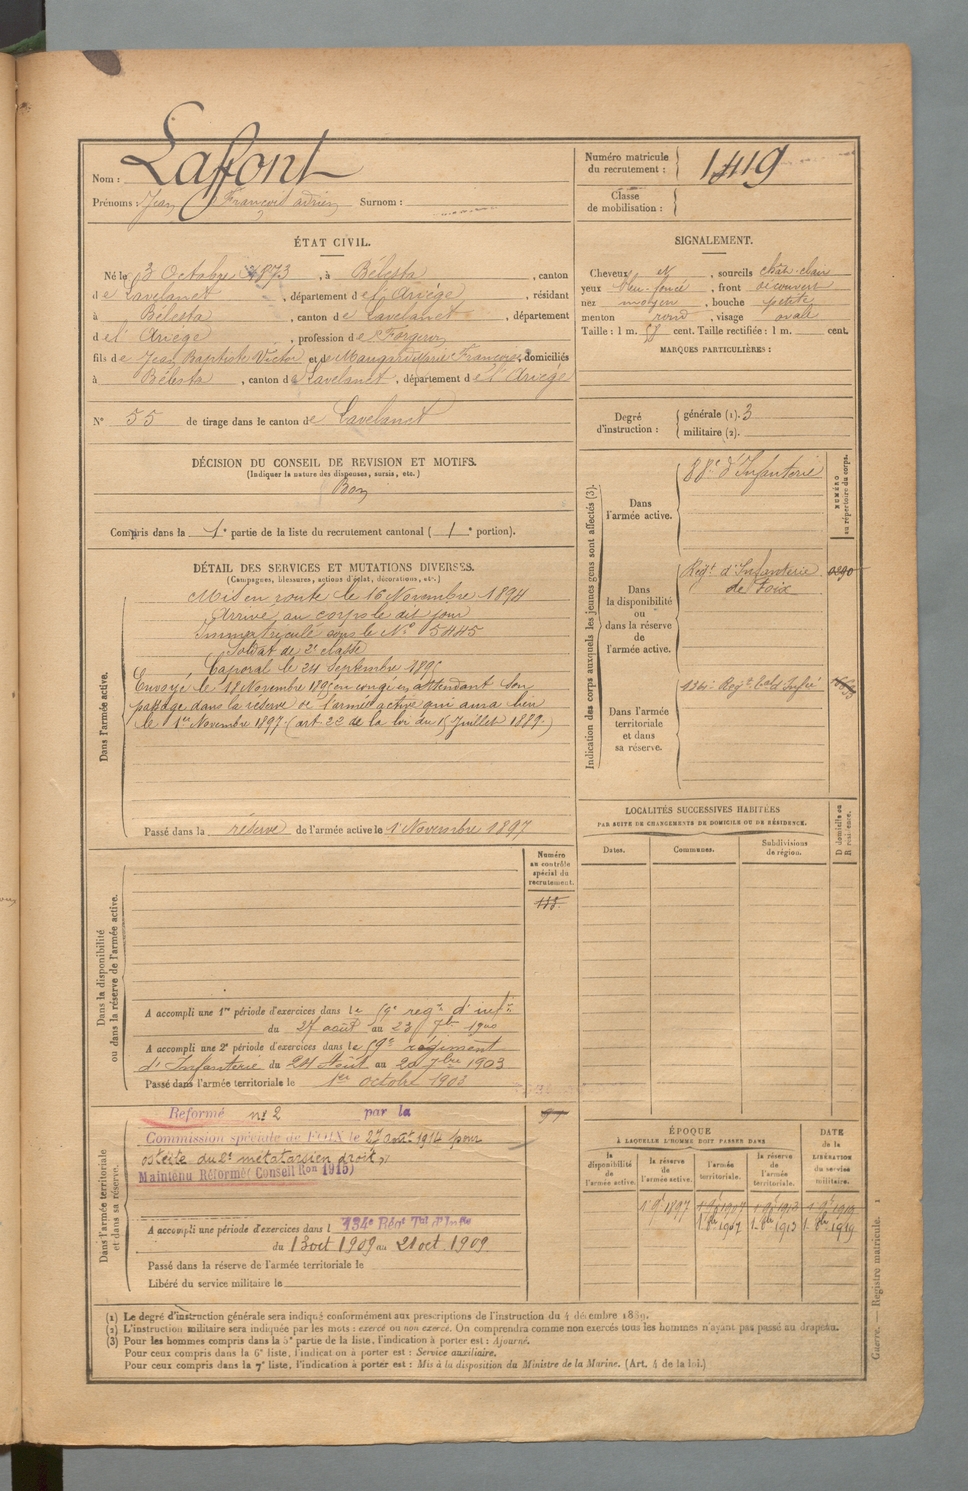 Nom : Laffont
Prénoms : Jean François Adrien Surnom :
Numéro matricule du recrutement : 1419
Classe de mobilisation :
ÉTAT CIVIL.
Né le 3 Octobre 1873, à Bélesta, canton
de Lavelanet, département de l'Ariège, résidant
à Bélesta, canton de Lavelanet, département
de l'Ariège, profession de Forgeron
fils de Jean Baptiste Victor et de Marie Françoise, domiciliés
à Bélesta, canton de Lavelanet, département de l'Ariège
N° 55 de tirage dans le canton de Lavelanet
DÉCISION DU CONSEIL DE REVISION ET MOTIFS.
(Indiquer la nature des dispenses, sursis, etc.)
Bon
Compris dans la 1e partie de la liste du recrutement cantonal (1e portion).
SIGNALEMENT.
Cheveux et, sourcils chât-clair
yeux bleu-foncé, front découvert
nez moyen, bouche petite
menton rond, visage ovale
Taille : 1 m. 58 cent. Taille rectifiée : 1 m. cent.
MARQUES PARTICULIÈRES :
Degré d'instruction :
générale (1). 3
militaire (2).
DÉTAIL DES SERVICES ET MUTATIONS DIVERSES.
(Campagnes, blessures, actions d'éclat, décorations, etc.)
Dans l'armée active.
Mis en route le 16 Novembre 1894
Arrivé au corps le dit jour
Immatriculé sous le N° 5445
Soldat de 2e classe
Caporal le 24 Septembre 1895
Envoyé le 18 Novembre en congé en attendant son
passage dans la réserve de l'armée active qui aura lieu
le 1er Novembre 1897 (art 22 de la loi du 15 Juillet 1889.)
Passé dans la réserve de l'armée active le 1er Novembre 1897
Indication des corps auxquels les jeunes gens sont affectés (3).
NUMÉRO au répertoire du corps.
Dans l'armée active.
88e d'Infanterie
Dans la disponibilité ou dans la réserve de l'armée active.
Régt d'Infanterie
de Foix
Dans l'armée territoriale et dans sa réserve.
134e Régt
LOCALITÉS SUCCESSIVES HABITÉES
PAR SUITE DE CHANGEMENTS DE DOMICILE OU DE RÉSIDENCE.
Dates.
Communes.
Subdivisions de région.
D domicile ou R résidence.
Dans la disponibilité ou dans la réserve de l'armée active.
Numéro au contrôle spécial du recrutement.
A accompli une 1re période d'exercices dans le 59e régt d'infie
du 27 août au 23 7bre 1900
A accompli une 2e période d'exercices dans le 59e régiment
d'Infanterie du 24 Août au 20 7bre 1903
Passé dans l'armée territoriale le 1er octobre 1903
Dans l'armée territoriale et dans sa réserve.
Réformé n° 2 par la
Commission spéciale de FOIX le 27 août 1914 pour
ostéite du 2e métatarsien droit
Maintenu Réformé (Conseil Ron 1915)
A accompli une période d'exercices dans l 134e Régt Tal d'Infie
du 13 oct 1909 au 21 oct. 1909
Passé dans la réserve de l'armée territoriale le
Libéré du service militaire le
ÉPOQUE
À LAQUELLE L'HOMME DOIT PASSER DANS
la disponibilité de l'armée active.
la réserve de l'armée active.
l'armée territoriale.
la réserve de l'armée territoriale.
DATE de la LIBÉRATION du service militaire.
(1) Le degré d'instruction générale sera indiqué conformément aux prescriptions de l'instruction du 4 décembre 1889.
(2) L'instruction militaire sera indiquée par les mots : exercé ou non exercé. On comprendra comme non exercés tous les hommes n'ayant pas passé au drapeau.
(3) Pour les hommes compris dans la 5e partie de la liste, l'indication à porter est : Ajourné.
Pour ceux compris dans la 6e liste, l'indication à porter est : Service auxiliaire.
Pour ceux compris dans la 7e liste, l'indication à porter est : Mis à la disposition du Ministre de la Marine. (Art. 4 de la loi.)
Guerre. — Registre matricule. 1